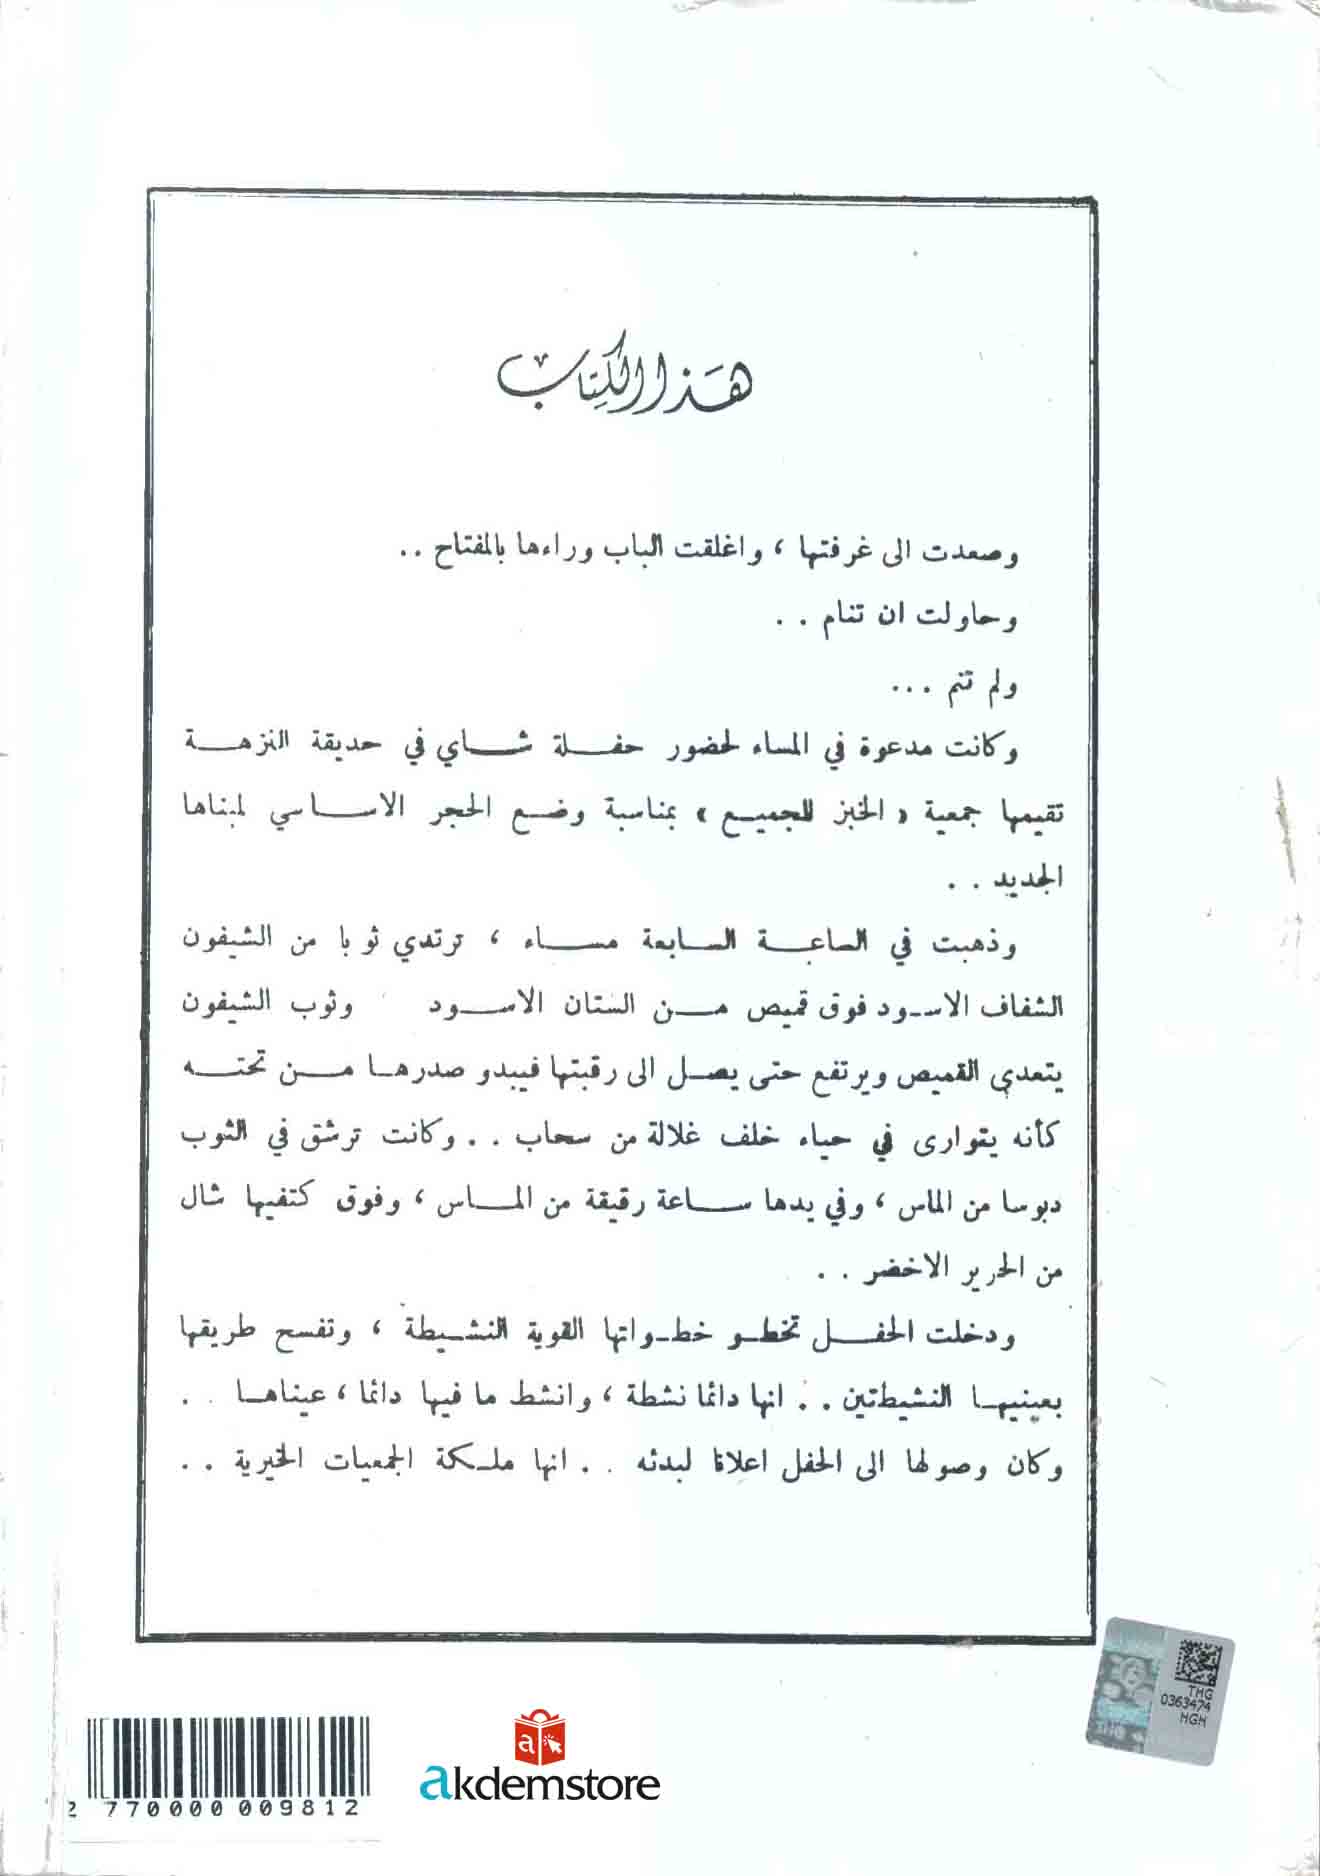 هذا الكتاب
وصعدت الى غرفتها ، واغلقت الباب وراءها بالمفتاح ..
وحاولت ان تنام . .
ولم تنم ...
وكانت مدعوة في المساء لحضور حفلة شاي في حديقة النزهة
تقيمها جمعية « الخبز للجميع » بمناسبة وضع الحجر الاساسي لمبناها
الجديد . .
وذهبت في الساعة السابعة مساء ، ترتدي ثوبا من الشيفون
الشفاف الاسود فوق قميص من الستان الاسود وثوب الشيفون
يتعدى القميص ويرتفع حتى يصل الى رقبتها فيبدو صدرها من تحته
كأنه يتوارى في حياء خلف غلالة من سحاب . . وكانت ترشق في الثوب
دبوسا من الماس ، وفي يدها ساعة رقيقة من الماس ، وفوق كتفيها شال
من الحرير الاخضر . .
ودخلت الحفل تخطو خطواتها القوية النشيطة ، وتفسح طريقها
بعينيها النشيطتين . . انها دائما نشطة ، وانشط ما فيها دائما ، عيناها . .
وكان وصولها الى الحفل اعلانا لبدئه . . انها ملكة الجمعيات الخيرية . .
THG
0363474
HGH
2 770000 009812
akdemstore